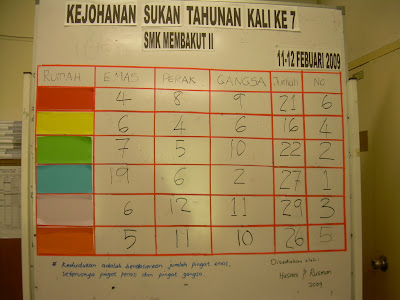 KEJOHANAN SUKAN TAHUNAN KALI KE 7
SMK MEMBAKUT II
11-12 FEBUARI 2009
RUMAH EMAS PERAK GANGSA Jumlah NO
4 8 9 21 6
6 4 6 16 4
7 5 10 22 2
19 6 2 27 1
6 12 11 29 3
5 11 10 26 5
* Kedudukan adalah berdasarkan jumlah pingat emas,
seterusnya pingat perak dan pingat gangsa.
Disediakan oleh:
2009